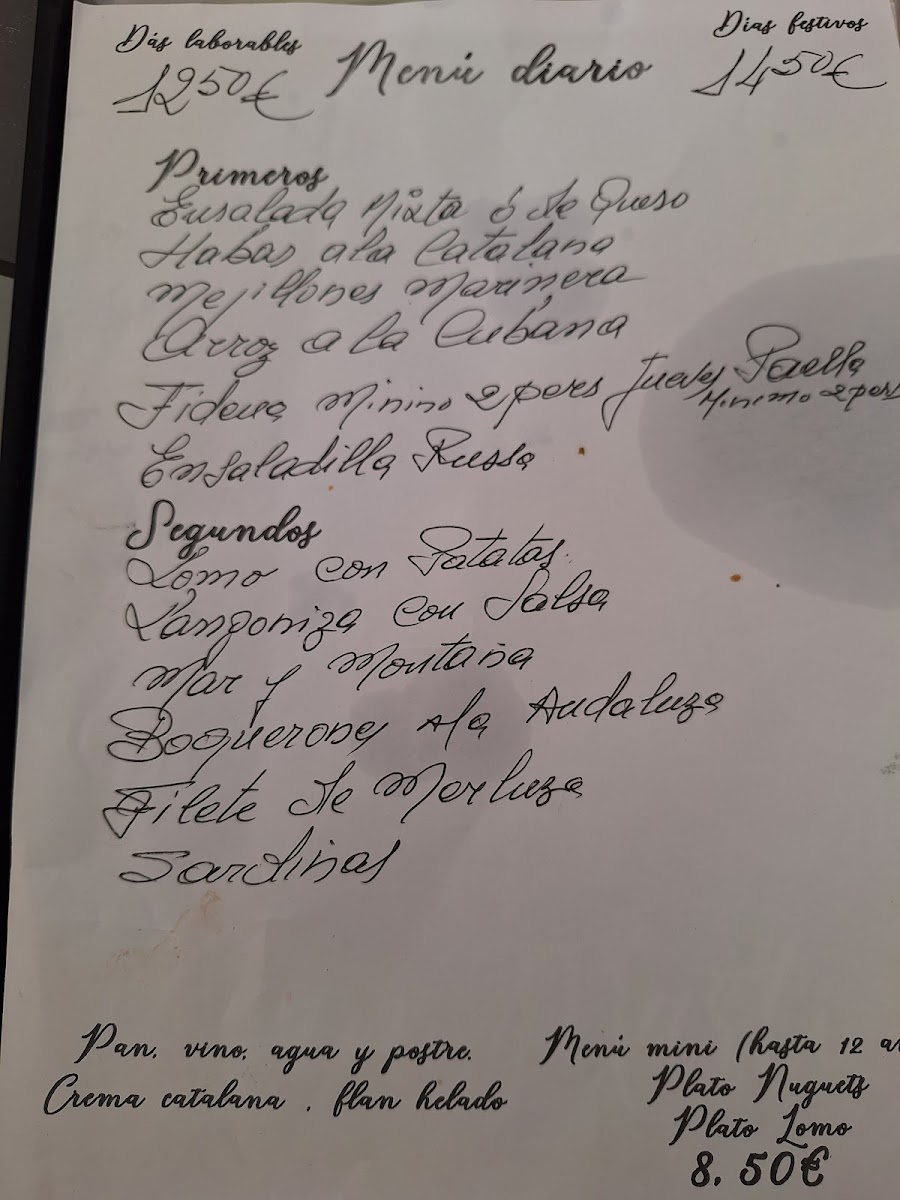 Dás laborables
Menú diario
Dias festivos
1250€
1450€
Primeros
Ensalada Mixta ó de Queso
Habas a la Catalana
Mejillones Marinera
Arroz a la Cubana
Fideua Minino 2 pers Jueves Paella
Minimo 2 pers
Ensaladilla Russa
Segundos
Lomo con Patatas
Langoniza con Salsa
Mar y Montaña
Boquerones A la Andaluza
Filete de Merluza
Sardinas
Pan, vino, agua y postre.
Crema catalana , flan helado
Menú mini (hasta 12 a
Plato Nuguets
Plato Lomo
8.50€